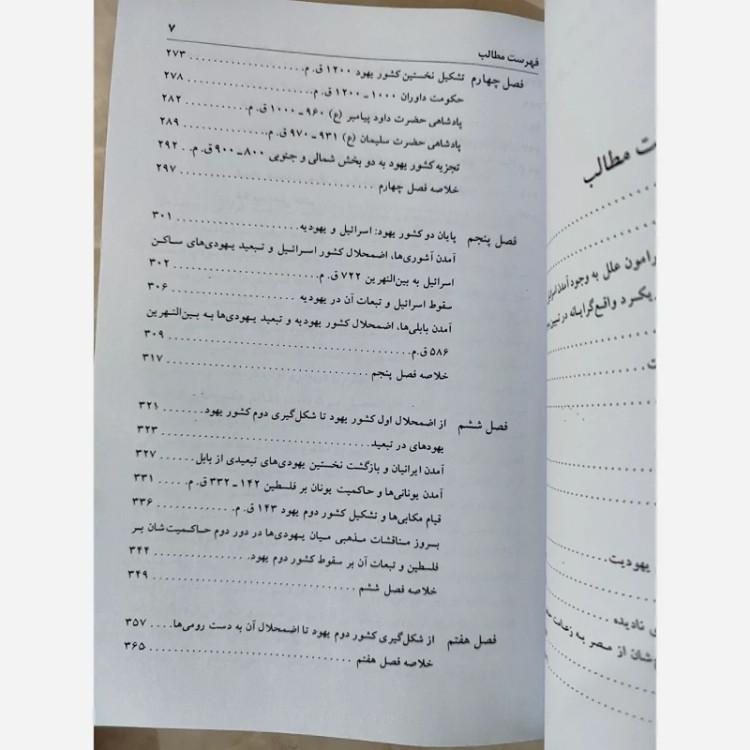 فهرست مطالب ۷
فصل چهارم تشکیل نخستین کشور یهود ۱۲۰۰ ق.م. .................... ۲۷۳
حکومت داوران ۱۰۰۰ ـ ۱۲۰۰ ق.م. .................... ۲۷۸
پادشاهی حضرت داود پیامبر (ع) ۹۶۰ ـ ۱۰۰۰ ق.م. .......... ۲۸۲
پادشاهی حضرت سلیمان (ع) ۹۳۱ ـ ۹۷۰ ق.م. .............. ۲۸۹
تجزیه کشور یهود به دو بخش شمالی و جنوبی ۸۰۰ ـ ۹۰۰ ق.م. .. ۲۹۲
خلاصه فصل چهارم .......................... ۲۹۷
فصل پنجم پایان دو کشور یهود: اسرائیل و یهودیه .................. ۳۰۱
آمدن آشوری‌ها، اضمحلال کشور اسرائیل و تبعید یهودی‌های ساکن
اسرائیل به بین‌النهرین ۷۲۲ ق.م. .................... ۳۰۲
سقوط اسرائیل و تبعات آن در یهودیه .................. ۳۰۶
آمدن بابلی‌ها، اضمحلال کشور یهودیه و تبعید یهودی‌ها به بین‌النهرین
۵۸۶ ق.م. .............................. ۳۰۹
خلاصه فصل پنجم .......................... ۳۱۷
فصل ششم از اضمحلال اول کشور یهود تا شکل‌گیری دوم کشور یهود ....... ۳۲۱
یهودهای در تبعید .......................... ۳۲۳
آمدن ایرانیان و بازگشت نخستین یهودی‌های تبعیدی از بابل ..... ۳۲۷
آمدن یونانی‌ها و حاکمیت یونان بر فلسطین ۱۴۲ ـ ۳۳۲ ق.م. ..... ۳۳۱
قیام مکابی‌ها و تشکیل کشور دوم یهود ۱۴۳ ق.م. ............ ۳۳۶
بروز مناقشات مذهبی میان یهودی‌ها در دور دوم حاکمیت‌شان بر
فلسطین و تبعات آن بر سقوط کشور دوم یهود. .............. ۳۴۴
خلاصه فصل ششم .......................... ۳۴۹
فصل هفتم از شکل‌گیری کشور دوم یهود تا اضمحلال آن به دست رومی‌ها .... ۳۵۷
خلاصه فصل هفتم .......................... ۳۶۵
مطالب
علل به وجود آمدن
واقع‌گرایانه در
یهودیت
نادیده
از مصر به